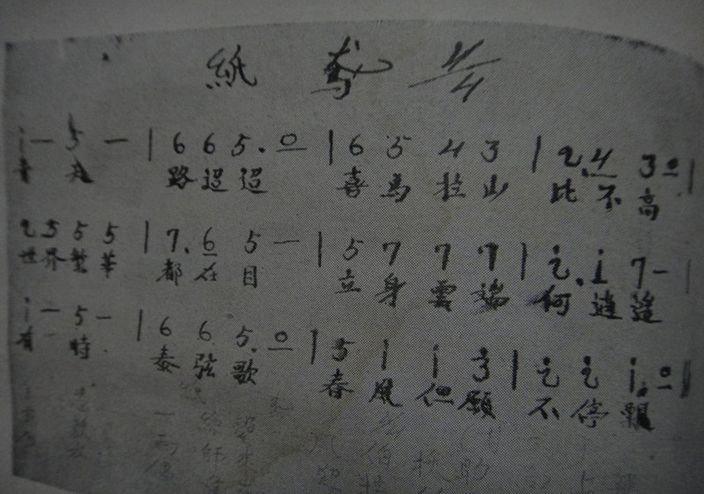 紙鳶 4/4
i — 5 — | 6 6 5. 0 | 6 5 4 3 | 2. 4 3 0 |
青 天 路 迢 迢 喜 馬 拉 山 比 不 高
2 5 5 5 | 7. 6 5 — | 5 7 7 7 | i. i 7 — |
世 界 繁 華 都 在 目 立 身 雲 端 何 逍 遙
i — 5 — | 6 6 5. 0 | 5 i i 3 | 2 2 i. 0 |
有 時 奏 弦 歌 春 風 但 願 不 停 飄